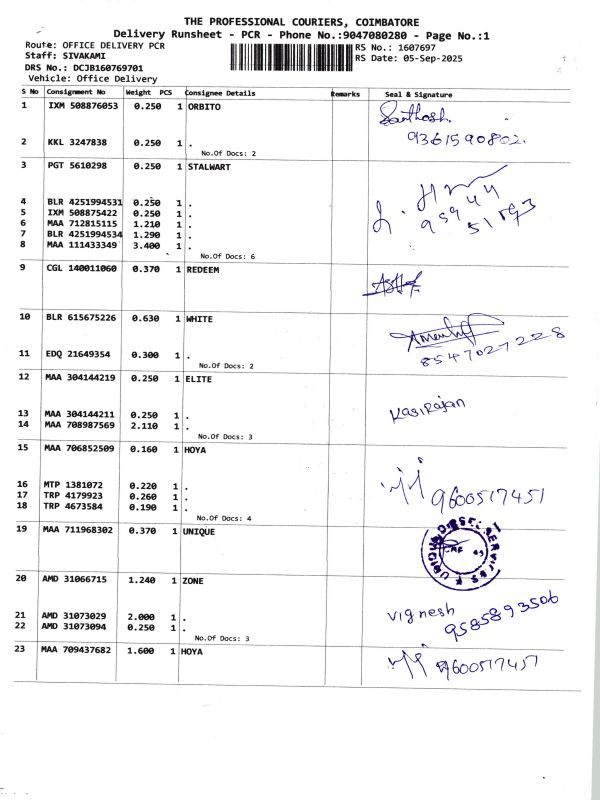 THE PROFESSIONAL COURIERS, COIMBATORE
Delivery Runsheet - PCR - Phone No.:9047080280 - Page No.:1
Route: OFFICE DELIVERY PCR
Staff: SIVAKAMI
DRS No.: DCJB160769701
Vehicle: Office Delivery
RS No.: 1607697
RS Date: 05-Sep-2025
S No Consignment No Weight PCS Consignee Details Remarks Seal & Signature
1 IXM 508876053 0.250 1 ORBITO Santhosh
9361590802.
2 KKL 3247838 0.250 1 .
No.Of Docs: 2
3 PGT 5610298 0.250 1 STALWART
4 BLR 4251994531 0.250 1 .
5 IXM 508875422 0.250 1 .
6 MAA 712815115 1.210 1 .
7 BLR 4251994534 1.290 1 .
8 MAA 111433349 3.400 1 .
No.Of Docs: 6
9 CGL 140011060 0.370 1 REDEEM
10 BLR 615675226 0.630 1 WHITE
8547027228
11 EDQ 21649354 0.300 1 .
No.Of Docs: 2
12 MAA 304144219 0.250 1 ELITE
Kasirajan
13 MAA 304144211 0.250 1 .
14 MAA 708987569 2.110 1 .
No.Of Docs: 3
15 MAA 706852509 0.160 1 HOYA
16 MTP 1381072 0.220 1 .
17 TRP 4179923 0.260 1 .
18 TRP 4673584 0.190 1 .
9600517451
No.Of Docs: 4
19 MAA 711968302 0.370 1 UNIQUE
20 AMD 31066715 1.240 1 ZONE
21 AMD 31073029 2.000 1 . Vignesh
22 AMD 31073094 0.250 1 . 9585893506
No.Of Docs: 3
23 MAA 709437682 1.600 1 HOYA 9600517451